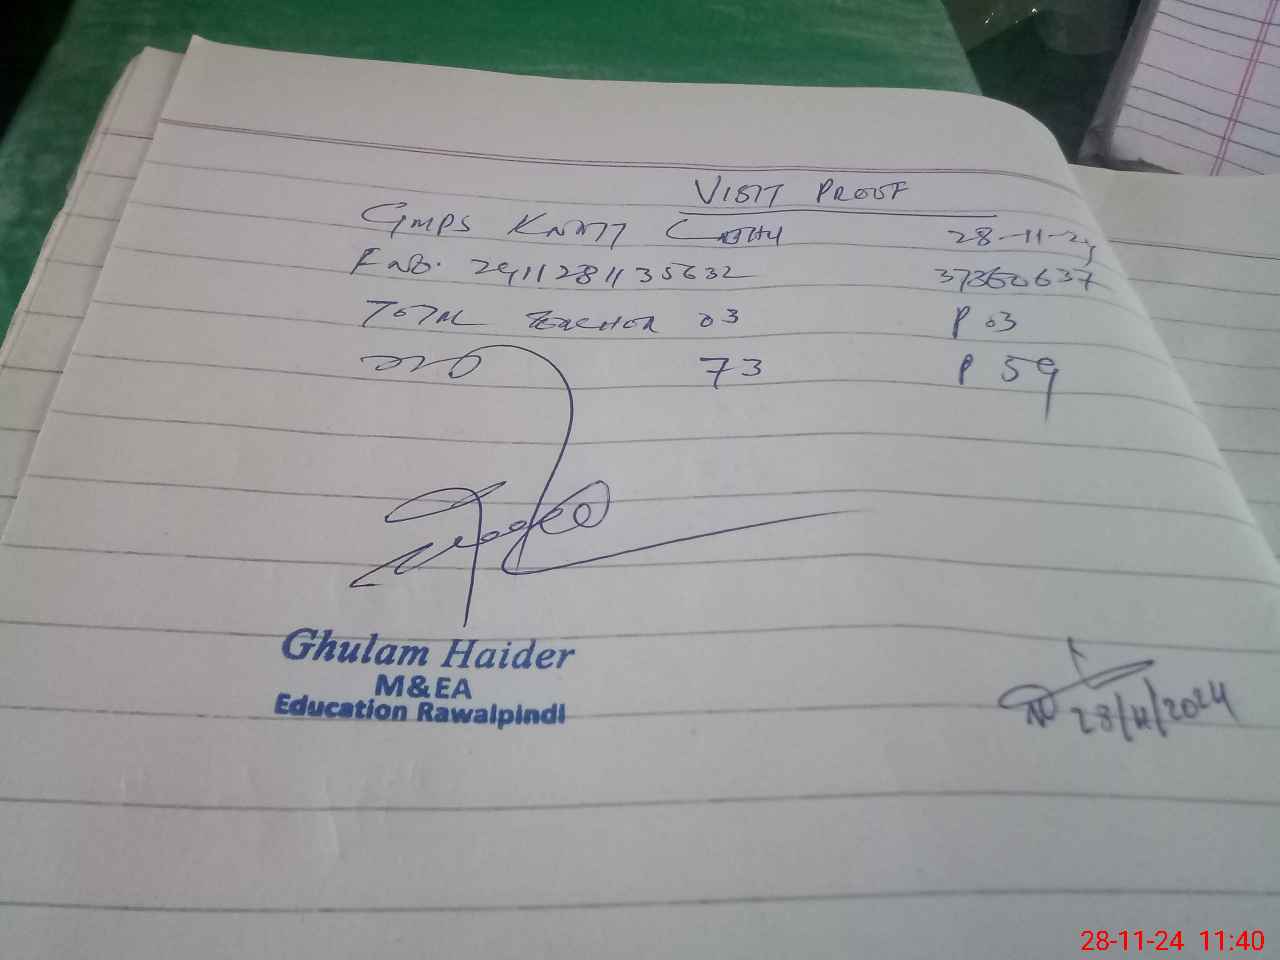 VISIT PROOF
GMPS 28-11-24
F No. 2411281135632 37360637
TOTAL TEACHER 03 P 03
73 P 59
Ghulam Haider
M&EA
Education Rawalpindi
28/11/2024
28-11-24 11:40